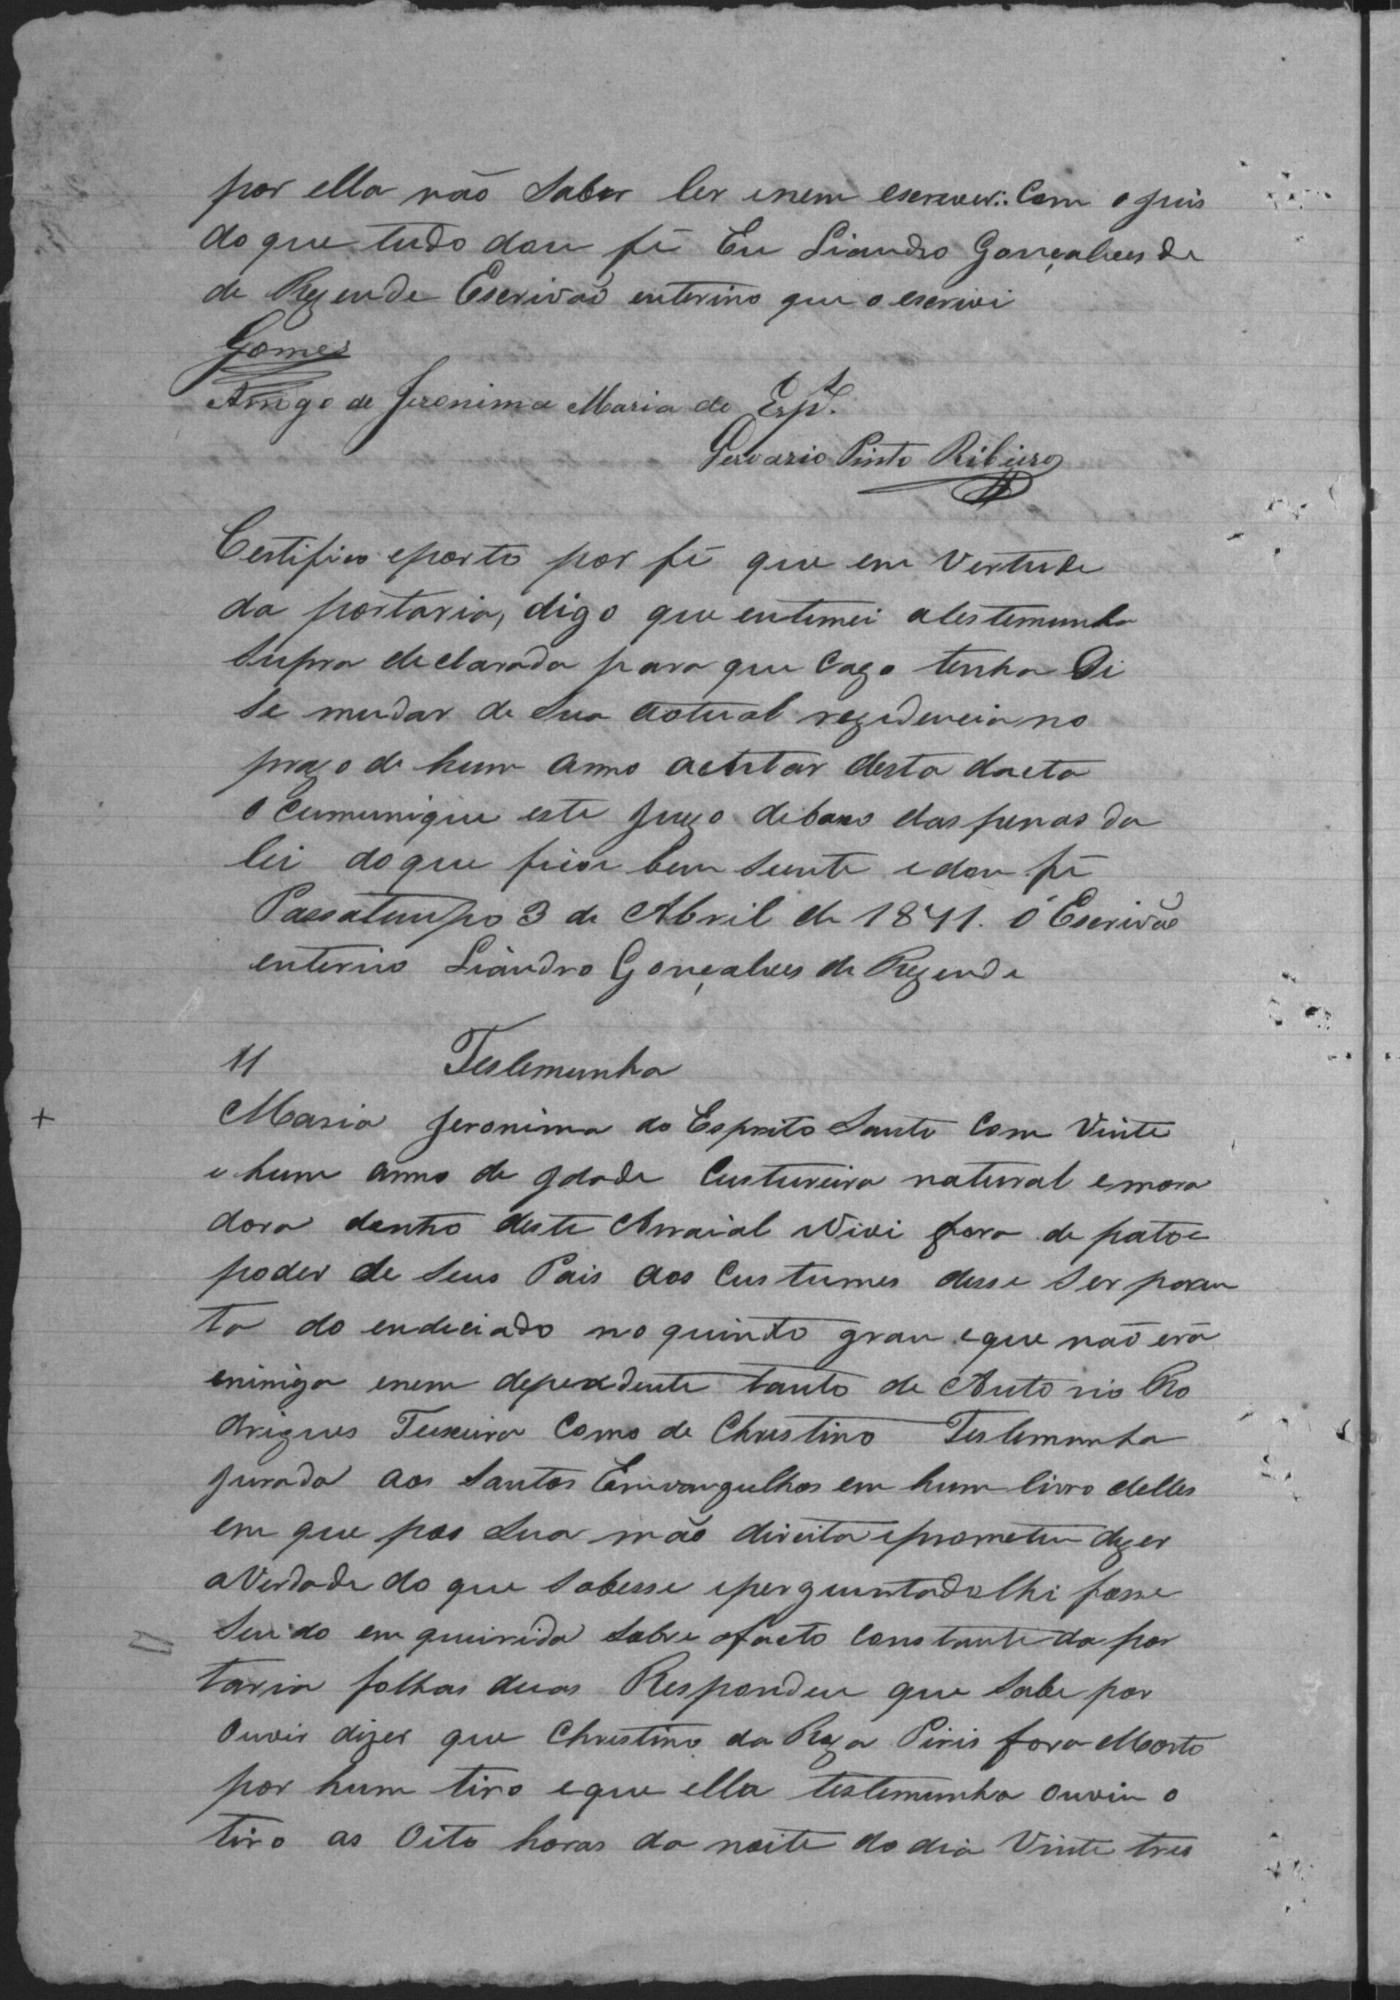 por ella não Saber ler enem escrever: Com o juis
do que tudo dou fé Eu Liandro Gonçalves de
de Rezende Escrivão enterino que o escrivi
Gomes
Arrogo de Jeronima Maria do Esp.to
Gervazio Pinto Ribeiro
Certifico eporto por fé que em Vertude
da portaria, digo que entimei atestemunha
Supra declarada para que cazo tenha Di
Se mudar de Sua actual rezidencia no
prazo de hum anno acontar desta dacta
o cumunique este Juizo debaxo das penas da
lei do que ficou bem Siente edou fé
Passatempo 3 de Abril de 1891. O Escrivão
enterino Liandro Gonçalves de Rezende
11 Testemunha
+ Maria Jeronima do Esprito Santo Com Vinte
e hum anno de Idade Custureira natural emora
dora dentro deste Arraial Vivi fora de patoe
poder de Seus Pais aos Custumes desse Ser paren
ta do endiciado no quinto grau eque não era
enimiga enem dependente tanto de Antonio Ro
drigues Teixeira Como de Christino Testemunha
Jurada aos Santos Emvangelhos em hum livro delles
em que pos Sua mão direita eprometeu dizer
aVerdade do que Sabesse eperguntadolhi fosse
Sendo emquirida Sobre ofacto Constante da por
taria folhas duas Respondeu que Sabe por
Ouvir dizer que Christino da Roza Piris fora Morto
por hum tiro eque ella testemunha Ouviu o
tiro as Oito horas da noite do dia Vinte tres